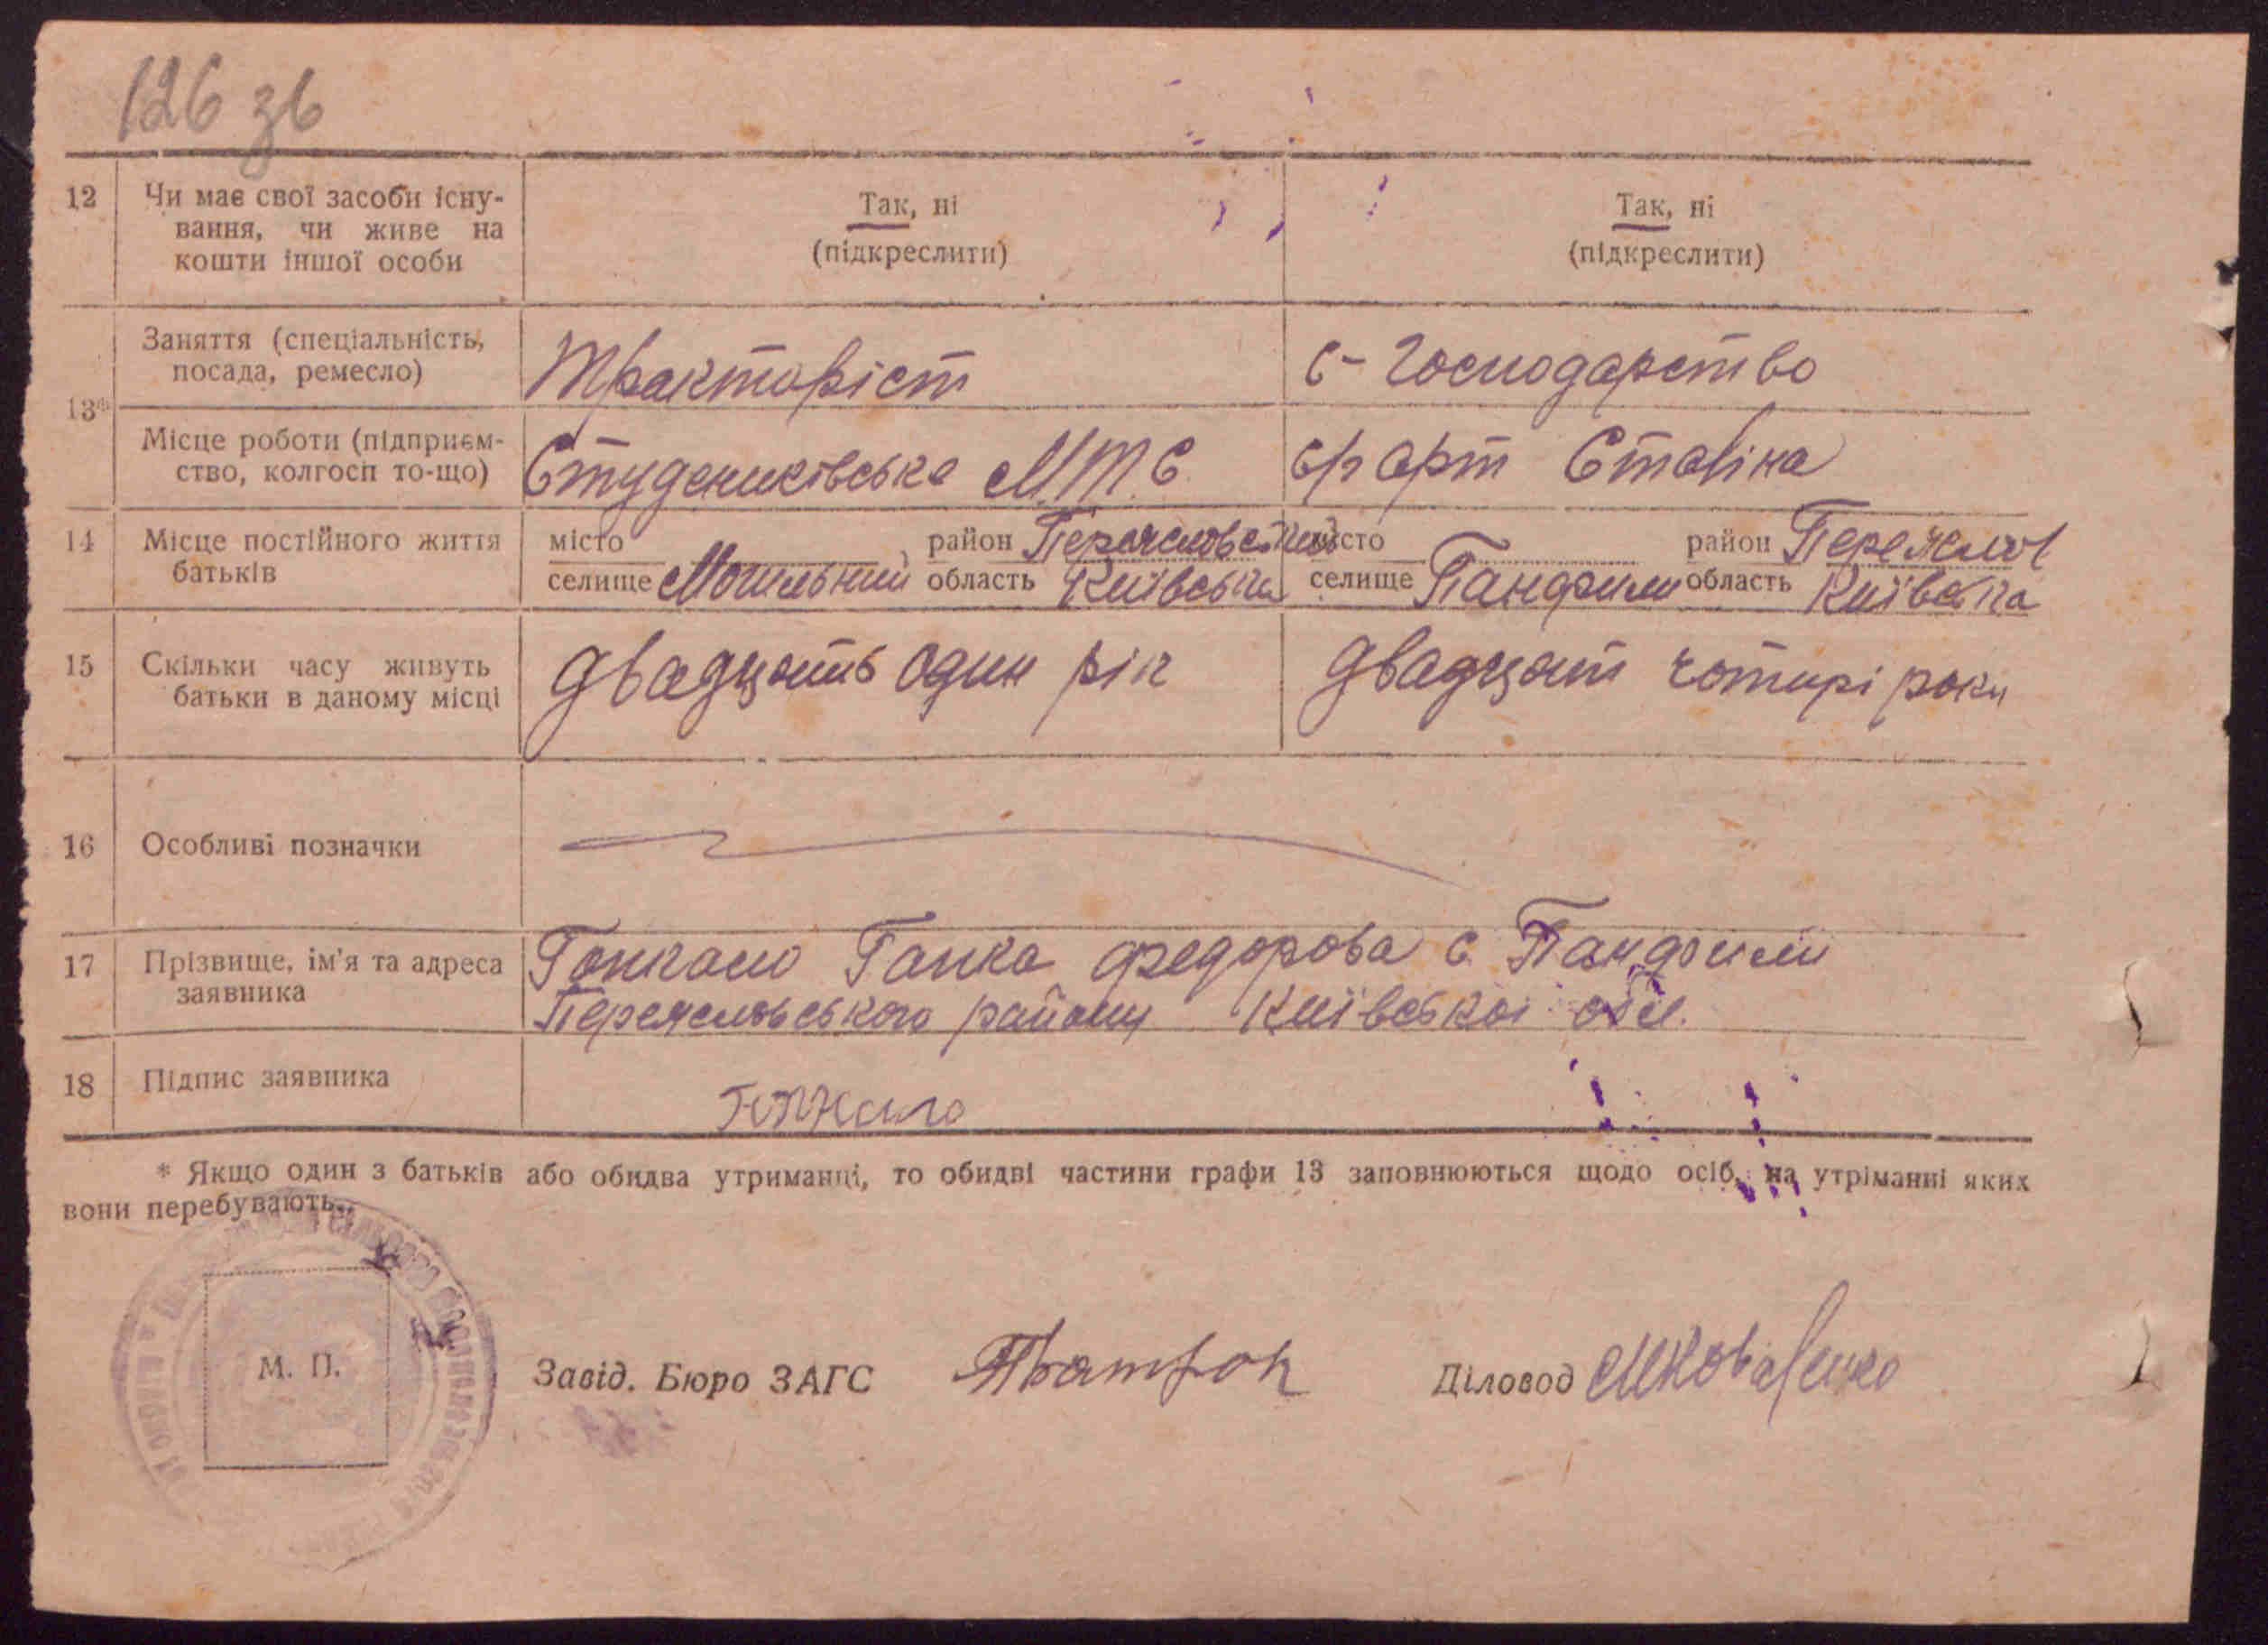 126 зв
12 Чи має свої засоби існу-
вання, чи живе на
кошти іншої особи
Так, ні
(підкреслити)
Так, ні
(підкреслити)
13*
Заняття (спеціальність,
посада, ремесло)
Тракторіст
с-господарство
Місце роботи (підприєм-
ство, колгосп то-що)
Студениківська М.Т.С.
с/г арт Сталіна
14 Місце постійного життя
батьків
місто район
селище область Київська
місто район
селище Панфили область Київська
15 Скільки часу живуть
батьки в даному місці
двадцять один рік
двадцят чотирі роки
16 Особливі позначки
17 Прізвище, ім'я та адреса
заявника
Ганка Федорова с. Панфили
району Київської обл.
18 Підпис заявника
* Якщо один з батьків або обидва утриманці, то обидві частини графи 13 заповнюються щодо осіб, на утріманні яких
вони перебувають.
М. П.
Завід. Бюро ЗАГС
Діловод Коваленко